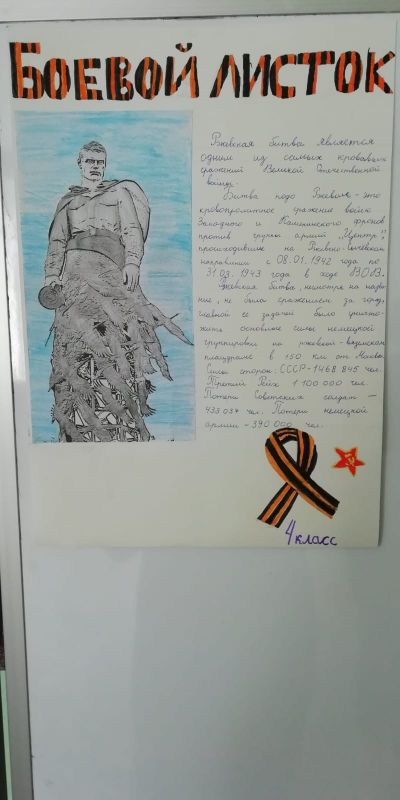 БОЕВОЙ ЛИСТОК
Ржевская битва является
одним из самых кровавых
сражений Великой Отечественной
войны.
Битва подо Ржевом - это
кровопролитное сражение войск
Западного и Калининского фронтов
против группы армий "Центр",
происходившие на Ржевско-Сычевском
направлении с 08.01.1942 года по
31.03.1943 года в ходе ВОВ.
Ржевская битва, несмотря на назва-
ние, не была сражением за город,
главной её задачей было уничто-
жить основные силы немецкой
группировки на ржевско-вяземском
плацдарме в 150 км от Москвы.
Силы сторон: СССР-1468 845 чел.
Третий Рейх 1 100 000 чел.
Потери Советских солдат -
433 037 чел. Потери немецкой
армии - 390 000 чел.
4 класс